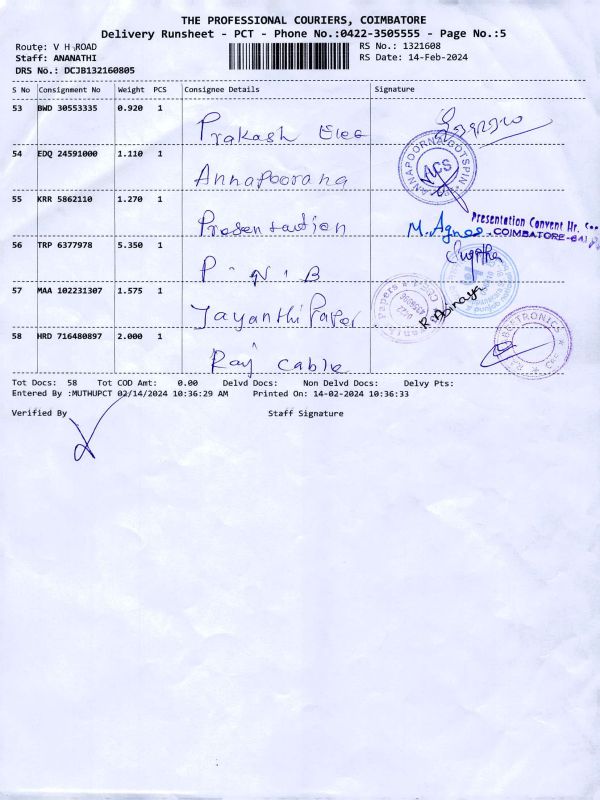 THE PROFESSIONAL COURIERS, COIMBATORE
Delivery Runsheet - PCT - Phone No.:0422-3505555 - Page No.:5
Route: V H ROAD
RS No.: 1321608
Staff: ANANATHI
RS Date: 14-Feb-2024
DRS No.: DCJB132160805
S No Consignment No Weight PCS Consignee Details Signature
53 BWD 30553335 0.920 1
Prakash Elec
54 EDQ 24591000 1.110 1
Annapoorana
ANNAPOORNA COTSPIN
VCS
55 KRR 5862110 1.270 1
Presentation
M. Agnes
Presentation Convent Hr.
COIMBATORE
56 TRP 6377978 5.350 1
P. N. B
Sugitha
57 MAA 102231307 1.575 1
Jayanthi Paper
Papers
R. Abinaya
58 HRD 716480897 2.000 1
Raj Cable
Tot Docs: 58 Tot COD Amt: 0.00 Delvd Docs: Non Delvd Docs: Delvy Pts:
Entered By :MUTHUPCT 02/14/2024 10:36:29 AM Printed On: 14-02-2024 10:36:33
Verified By Staff Signature